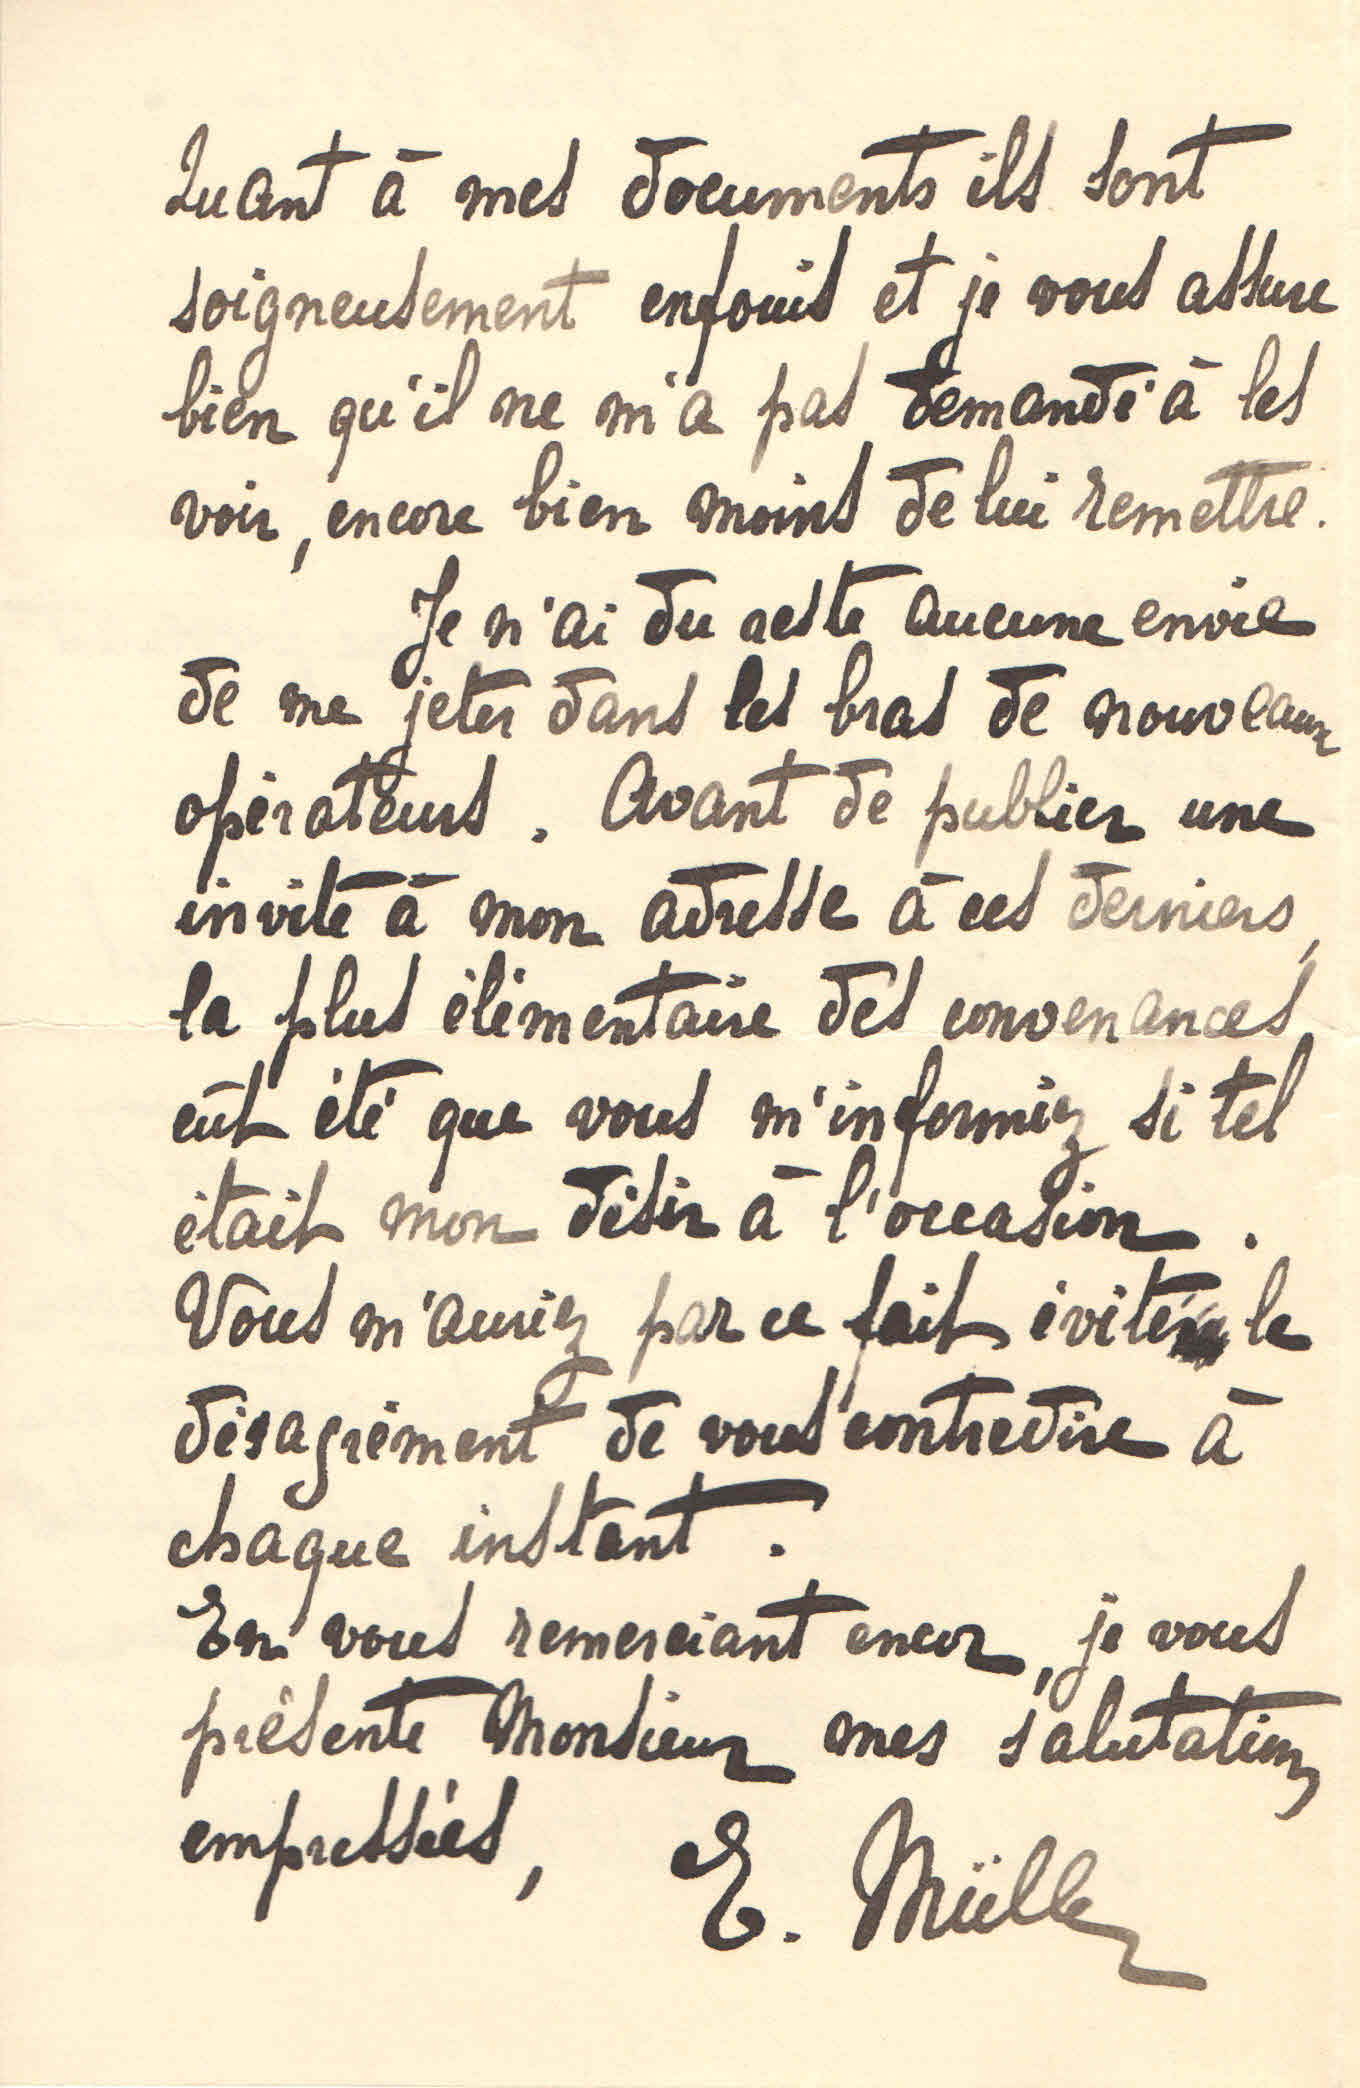 Quant à mes documents ils sont
soigneusement enfouis et je vous assure
bien qu'il ne m'a pas demandé à les
voir, encore bien moins de lui remettre.
Je n'ai du reste aucune envie
de me jeter dans les bras de nouveaux
opérateurs. Avant de publier une
invite à mon adresse à ces derniers,
la plus élémentaire des convenances
eût été que vous m'informiez si tel
était mon désir à l'occasion.
Vous m'auriez par ce fait évité le
désagrément de vous contredire à
chaque instant.
En vous remerciant encor, je vous
présente Monsieur mes salutations
empressées,
E. Müller